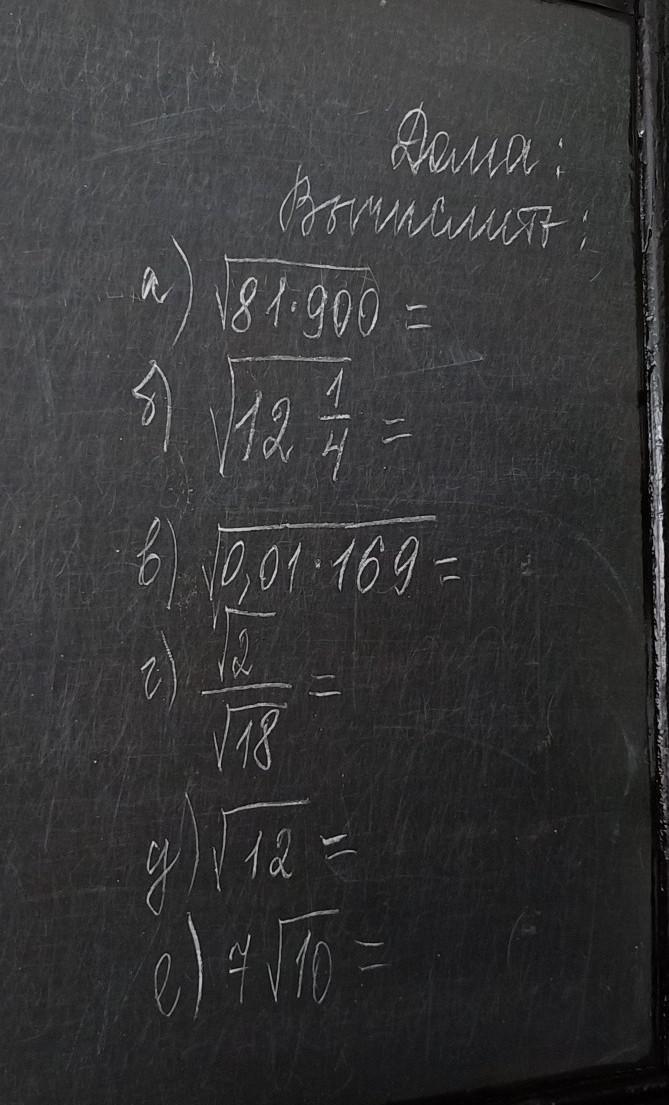 Дома:
Вычислить:
а) √81·900 =
б) √12 1/4 =
в) √0,01·169 =
г) √2/√18 =
д) √12 =
е) 7√10 =